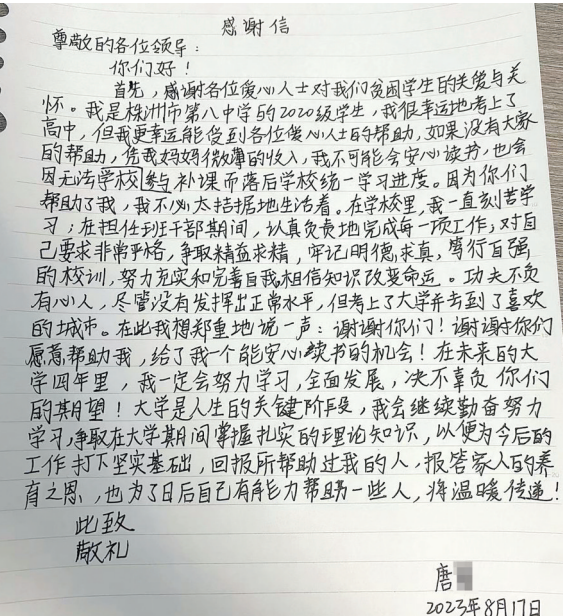 感谢信
尊敬的各位领导：
你们好！
首先，感谢各位爱心人士对我们贫困学生的关爱与关
怀。我是株洲市第八中学的2020级学生，我很幸运地考上了
高中，但我更幸运能受到各位爱心人士的帮助，如果没有大家
的帮助，凭我妈妈微薄的收入，我不可能会安心读书，也会
因无法学校参与补课而落后学校统一学习进度。因为你们
帮助了我，我不必太拮据地生活着。在学校里，我一直刻苦学
习；在担任班干部期间，认真负责地完成每一项工作，对自
己要求非常严格，争取精益求精，牢记明德，求真，笃行自强
的校训，努力充实和完善自我，相信知识改变命运。功夫不负
有心人，尽管没有发挥出正常水平，但考上了大学并去到了喜欢
的城市。在此我想郑重地说一声：谢谢你们！谢谢你们
愿意帮助我，给了我一个能安心读书的机会！在未来的大
学四年里，我一定会努力学习，全面发展，决不辜负你们
的期望！大学是人生的关键阶段，我会继续勤奋努力
学习，争取在大学期间掌握扎实的理论知识，以便为今后的
工作打下坚实基础，回报所帮助过我的人，报答家人的养
育之恩，也为了日后自己有能力帮助一些人，将温暖传递！
此致
敬礼
唐
2023年8月17日